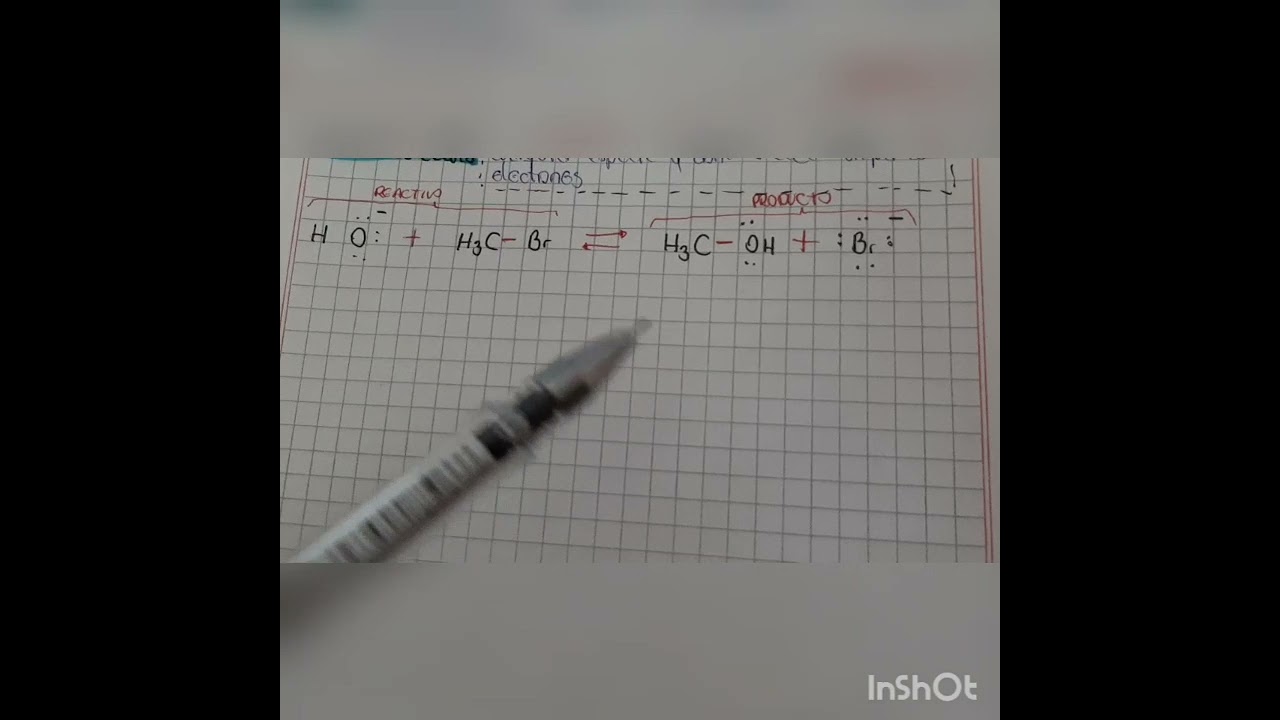 electrones
REACTIVO PRODUCTO
H O + H3C - Br ⇌ H3C - OH + Br -
InShOt